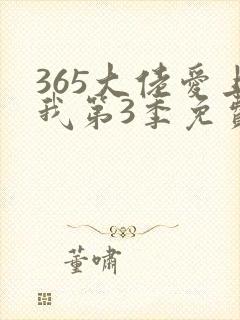 365大佬爱上
我第3季免费
董啸